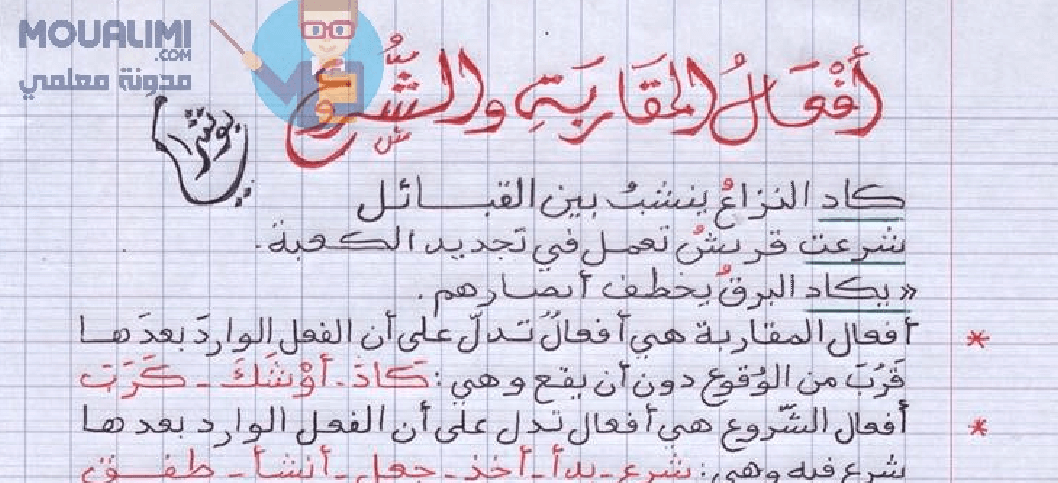 MOUALIMI
.COM
مدونة معلمي
أَفْعَالُ المَقَارَبَةِ والشُّرُوع
كاد النزاعُ ينشبُ بين القبائل
شرعت قريشُ تعمل في تجديد الكعبة.
« يكاد البرقُ يخطف أبصارهم.
* أفعال المقاربة هي أفعالٌ تدلّ على أن الفعل الواردَ بعدَها
قَرُبَ من الوُقوع دون أن يقع وهي: كَادَ - أَوْشَكَ - كَرَبَ
* أفعال الشّروع هي أفعال تدل على أن الفعل الوارد بعدها
شرع فيه وهي: شرع - بدأ - أخذ - جعل - أنشأ - طفق